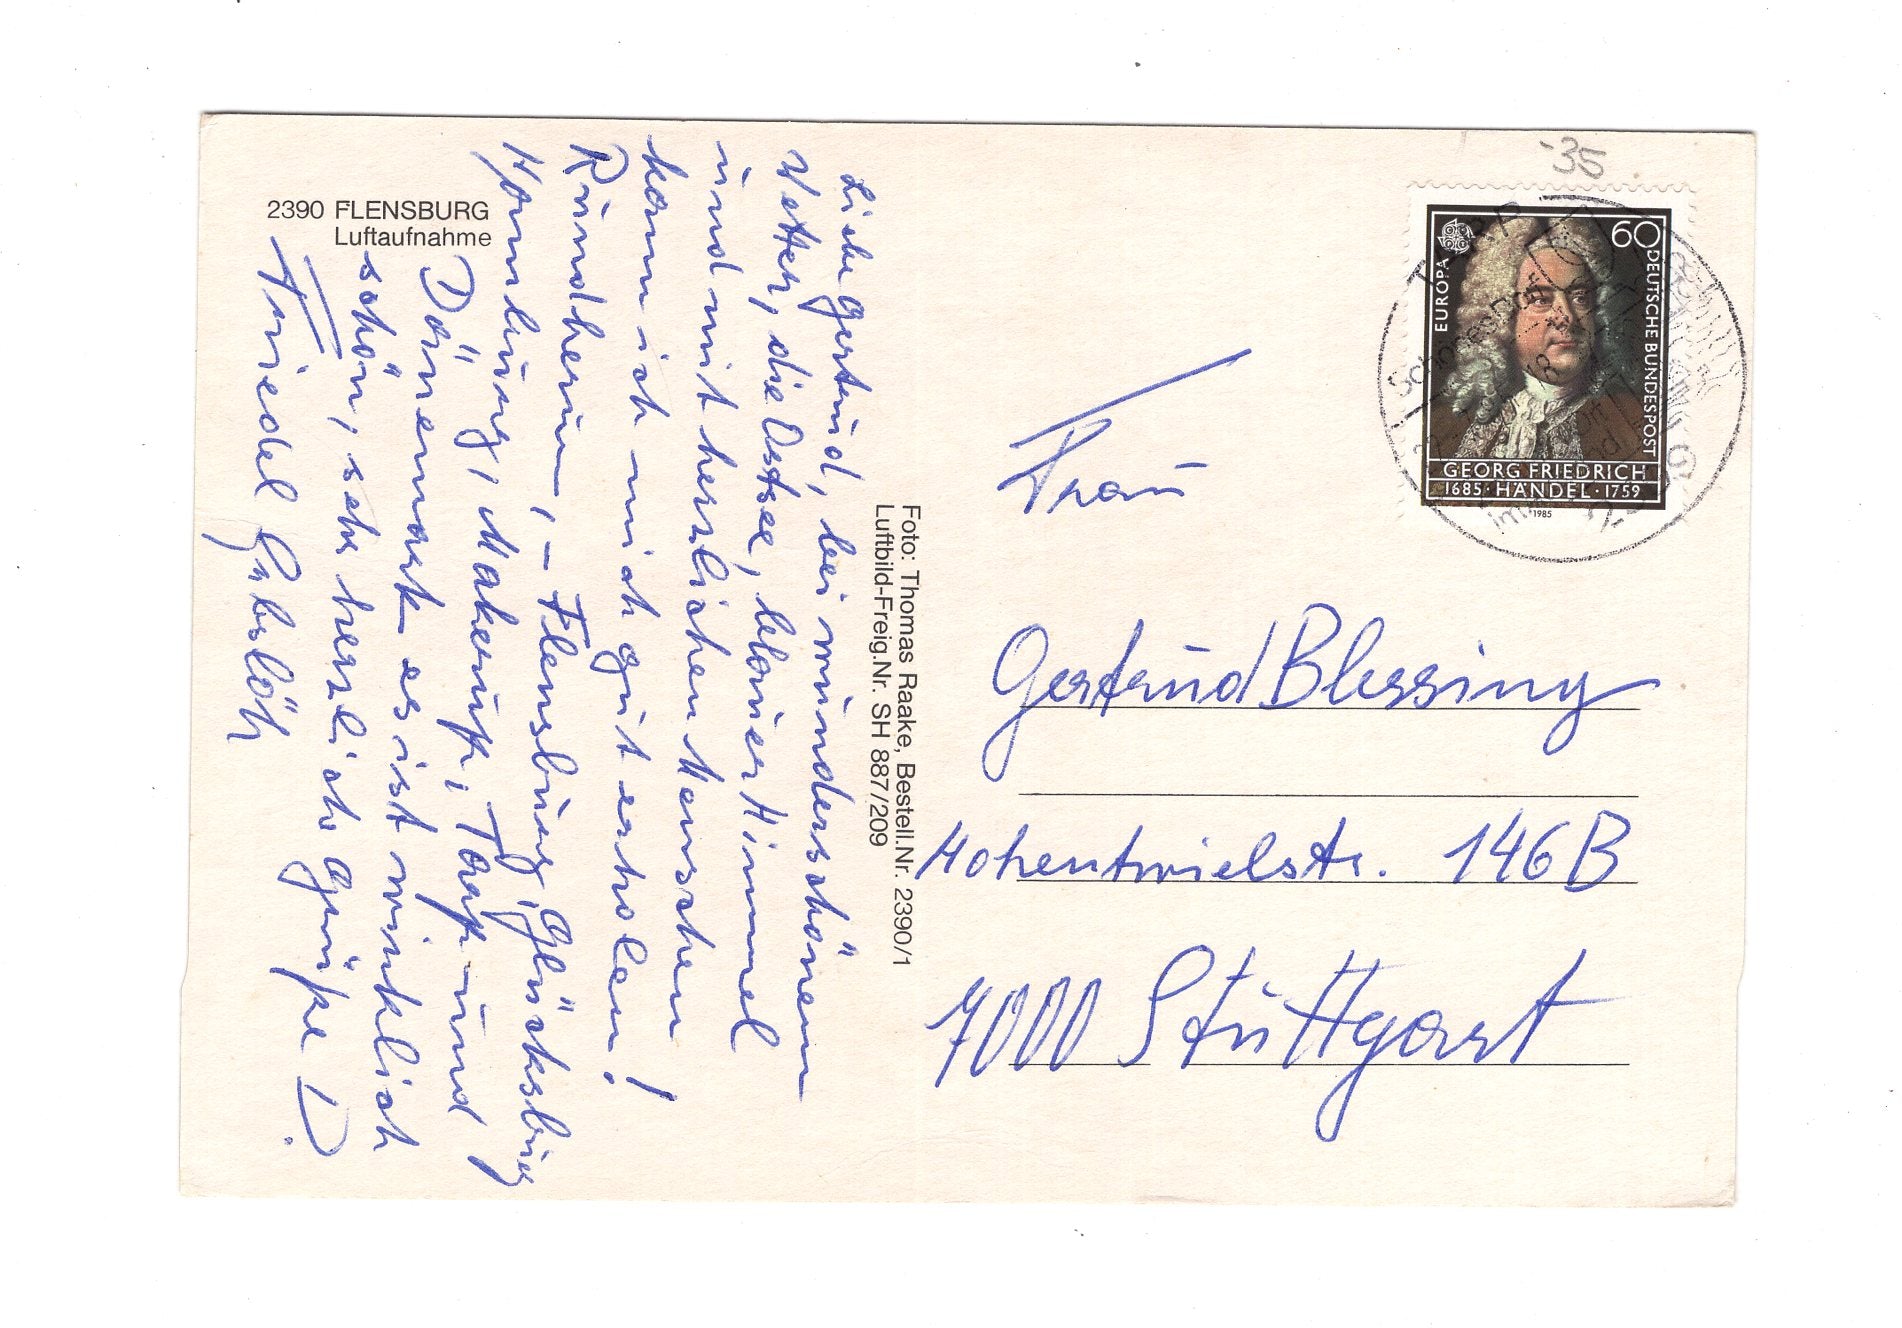 2390 FLENSBURG
Luftaufnahme
Liebe Gertrud, bei wunderschönem
Wetter, die Ostsee, blauer Himmel
und mit herzlichen Menschen
kann ich mich gut erholen!
Rundherum, - Flensburg, Glücksburg
Dänemark es ist wirklich
schön, sehr herzliche Grüße
Friedel
Foto: Thomas Raake, Bestell.Nr. 2390/1
Luftbild-Freig.Nr. SH 887/209
-35
EUROPA
60
DEUTSCHE BUNDESPOST
GEORG FRIEDRICH
1685 · HÄNDEL · 1759
1985
Frau
Gertrud Blessing
Hohentwielstr. 146B
7000 Stuttgart